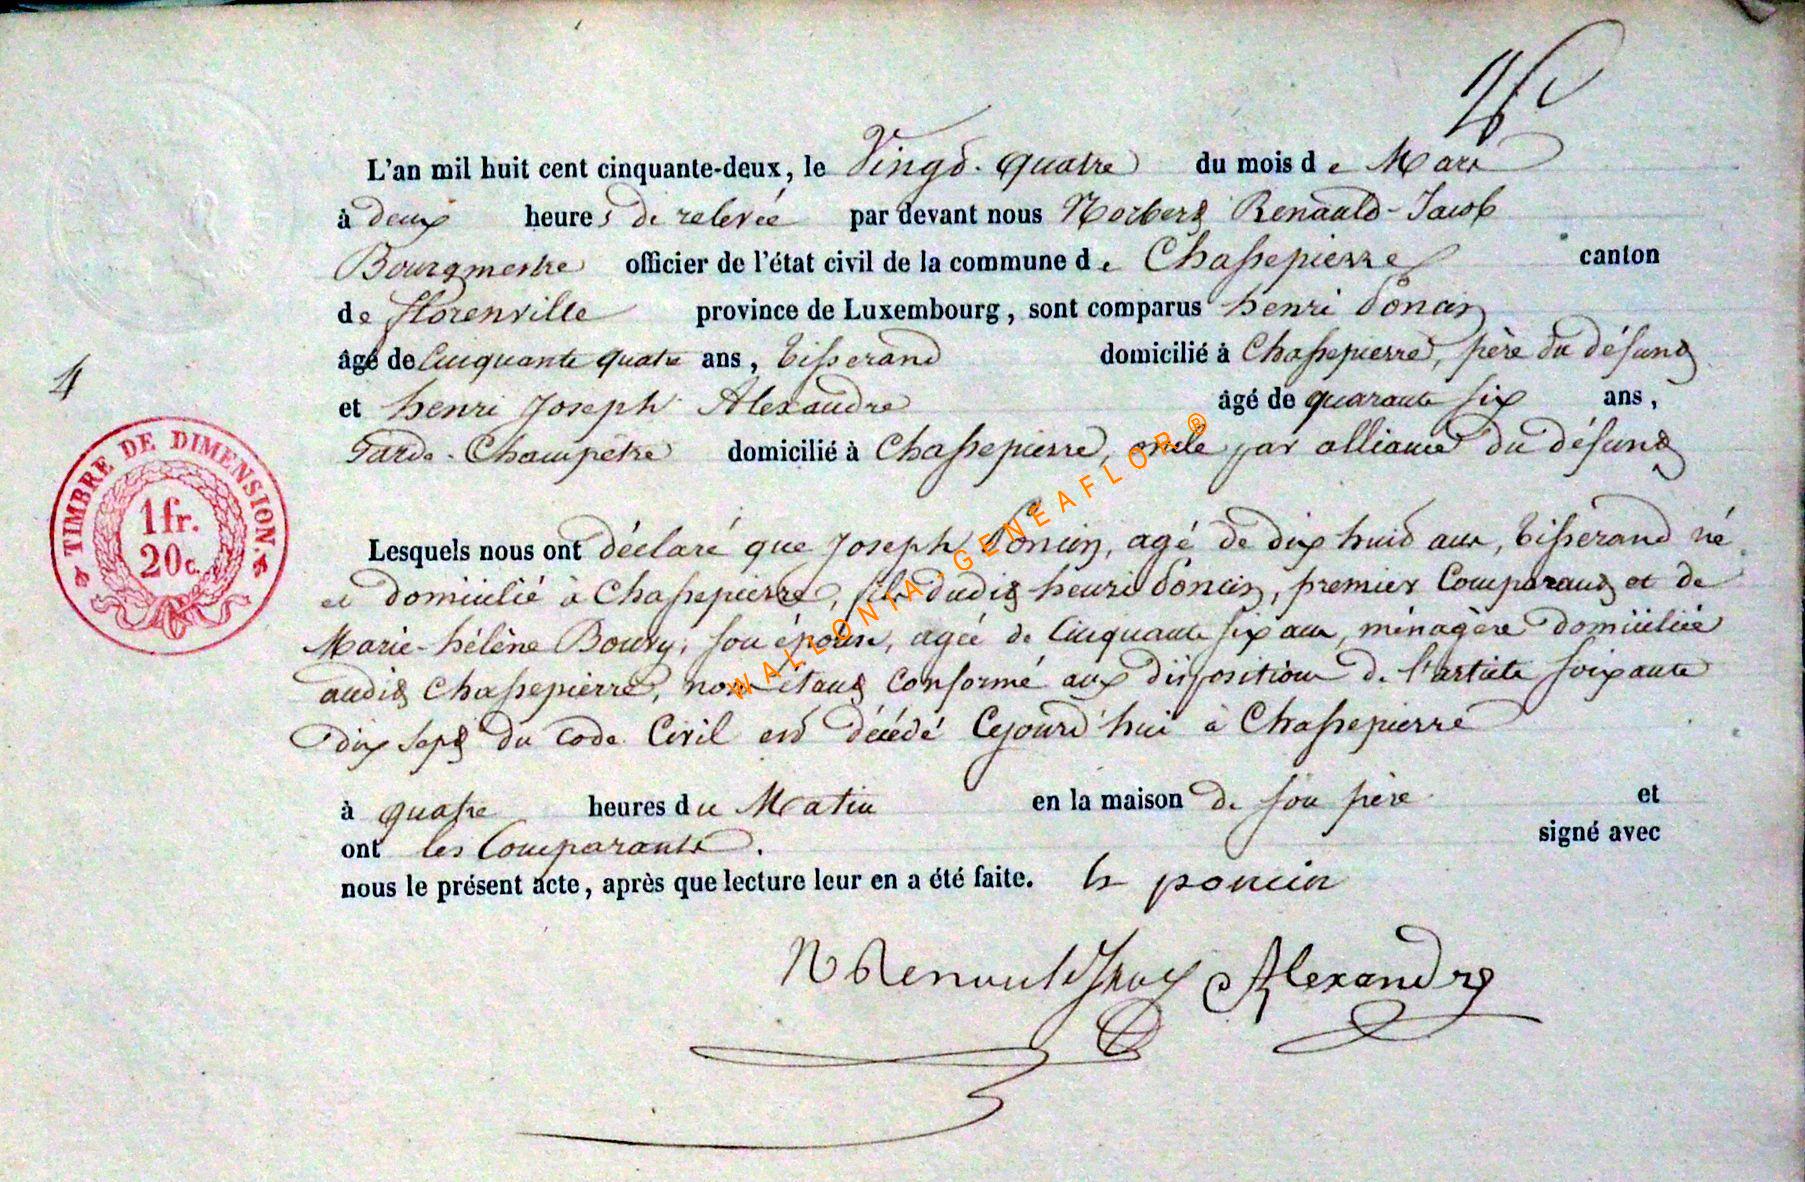 L'an mil huit cent cinquante-deux, le Vingt-quatre du mois de Mars
à deux heures de relevée par devant nous Norbert Renauld-Jacob
Bourgmestre officier de l'état civil de la commune de Chassepierre canton
de florenville province de Luxembourg, sont comparus henri Poncin
âgé de Cinquante quatre ans, tisserand domicilié à Chassepierre, père du défunt
4
et henri Joseph Alexandre âgé de quarante six ans,
Garde-Champêtre domicilié à Chassepierre, oncle par alliance du défunt
TIMBRE DE DIMENSION.
1 fr.
20 c.
Lesquels nous ont déclaré que Joseph Poncin, agé de dix huit ans, tisserand né
et domicilié à Chassepierre, fils dudit henri Poncin, premier Comparant et de
Marie-hélène Bouvy, son épouse, agée de Cinquante six ans, ménagère domiciliée
audit Chassepierre, nous étant Conformé aux dispositions de l'article soixante
dix sept du Code Civil est décédé Cejourd'hui à Chassepierre
à quatre heures du Matin en la maison de son père et
ont les Comparants. signé avec
nous le présent acte, après que lecture leur en a été faite. h poncin
N Renauld Jacob Alexandre
WALLONIA-GENEAFLOR®